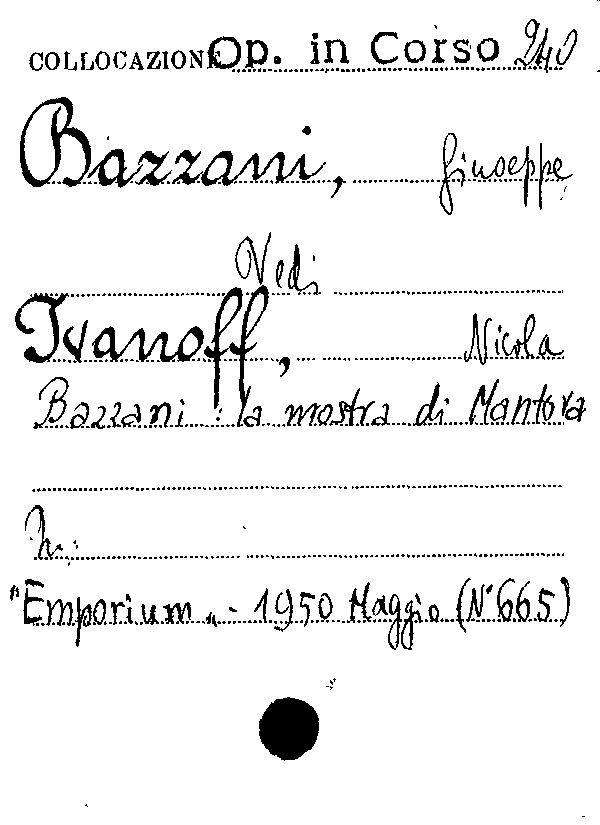 COLLOCAZIONE Op. in Corso 240
Bazzani, Giuseppe
Vedi
Ivanoff, Nicola
Bazzani : la mostra di Mantova
In:
"Emporium" - 1950 Maggio (N° 665)